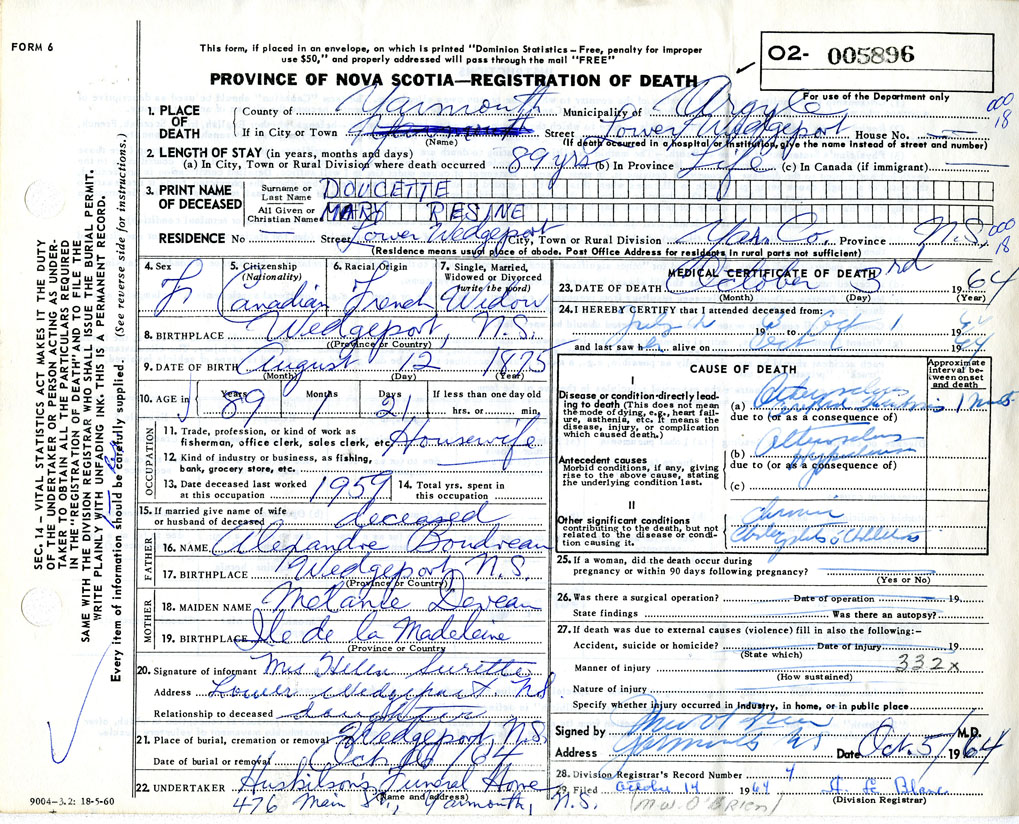 FORM 6
This form, if placed in an envelope, on which is printed "Dominion Statistics – Free, penalty for improper
use $50," and properly addressed will pass through the mail "FREE"
O2- 005896
PROVINCE OF NOVA SCOTIA—REGISTRATION OF DEATH
For use of the Department only
1. PLACE OF DEATH County of Yarmouth Municipality of Argyle
000
18
If in City or Town Street Lower Wedgeport House No. —
(Name) (If death occurred in a hospital or institution, give the name instead of street and number)
2. LENGTH OF STAY (in years, months and days)
(a) In City, Town or Rural Division where death occurred 89 yrs (b) In Province Life (c) In Canada (if immigrant) —
3. PRINT NAME OF DECEASED Surname or Last Name DOUCETTE
All Given or Christian Name MARY RESINE
RESIDENCE No — Street Lower Wedgeport City, Town or Rural Division Yar. Co. Province N.S.
000
18
(Residence means usual place of abode. Post Office Address for residents in rural parts not sufficient)
4. Sex F
5. Citizenship (Nationality) Canadian
6. Racial Origin French
7. Single, Married, Widowed or Divorced (write the word) Widow
8. BIRTHPLACE Wedgeport, N.S.
(Province or Country)
9. DATE OF BIRTH August 12 1875
(Month) (Day) (Year)
10. AGE in Years 89 Months 1 Days 21 If less than one day old
hrs. or min.
OCCUPATION
11. Trade, profession, or kind of work as
fisherman, office clerk, sales clerk, etc. Housewife
12. Kind of industry or business, as fishing,
bank, grocery store, etc.
13. Date deceased last worked at this occupation 1959
14. Total yrs. spent in this occupation
15. If married give name of wife
or husband of deceased deceased
FATHER
16. NAME Alexandre Boudreau
17. BIRTHPLACE Wedgeport N.S.
(Province or Country)
MOTHER
18. MAIDEN NAME Melanie Deveau
19. BIRTHPLACE Ile de la Madeleine
(Province or Country)
20. Signature of informant Mrs Helen Surette
Address Lower Wedgeport NS
Relationship to deceased daughter
21. Place of burial, cremation or removal Wedgeport, N.S.
Date of burial or removal Oct
22. UNDERTAKER Huskilson's Funeral Home
(Name and address)
476 Main St., Yarmouth, N.S.
MEDICAL CERTIFICATE OF DEATH
23. DATE OF DEATH October 3rd 1964
(Month) (Day) (Year)
24. I HEREBY CERTIFY that I attended deceased from:
July 19 to Oct 1 1964
and last saw alive on Oct 1 1964
CAUSE OF DEATH
Approximate interval between onset and death
I
Disease or condition directly leading to death (This does not mean the mode of dying, e.g., heart failure, asthenia, etc. It means the disease, injury, or complication which caused death.)
(a)
due to (or as a consequence of)
Antecedent causes
Morbid conditions, if any, giving rise to the above cause, stating the underlying condition last.
(b)
due to (or as a consequence of)
(c)
II
Other significant conditions
contributing to the death, but not related to the disease or condition causing it.
25. If a woman, did the death occur during
pregnancy or within 90 days following pregnancy?
(Yes or No)
26. Was there a surgical operation? Date of operation 19
State findings Was there an autopsy?
27. If death was due to external causes (violence) fill in also the following:–
Accident, suicide or homicide? Date of injury 19
(State which)
Manner of injury 332x
(How sustained)
Nature of injury
Specify whether injury occurred in industry, in home, or in public place
Signed by M.D.
Address Yarmouth NS Date Oct. 5/ 1964
28. Division Registrar's Record Number 4
29. Filed October 14 1964
(Division Registrar)
(M.W. O'BRIEN)
SEC. 14 – VITAL STATISTICS ACT MAKES IT THE DUTY
OF THE UNDERTAKER OR PERSON ACTING AS UNDER-
TAKER TO OBTAIN ALL THE PARTICULARS REQUIRED
IN THE "REGISTRATION OF DEATH" AND TO FILE THE
SAME WITH THE DIVISION REGISTRAR WHO SHALL ISSUE THE BURIAL PERMIT.
WRITE PLAINLY WITH UNFADING INK. THIS IS A PERMANENT RECORD.
Every item of information should be carefully supplied. (See reverse side for instructions.)
9004-3.2: 18-5-60